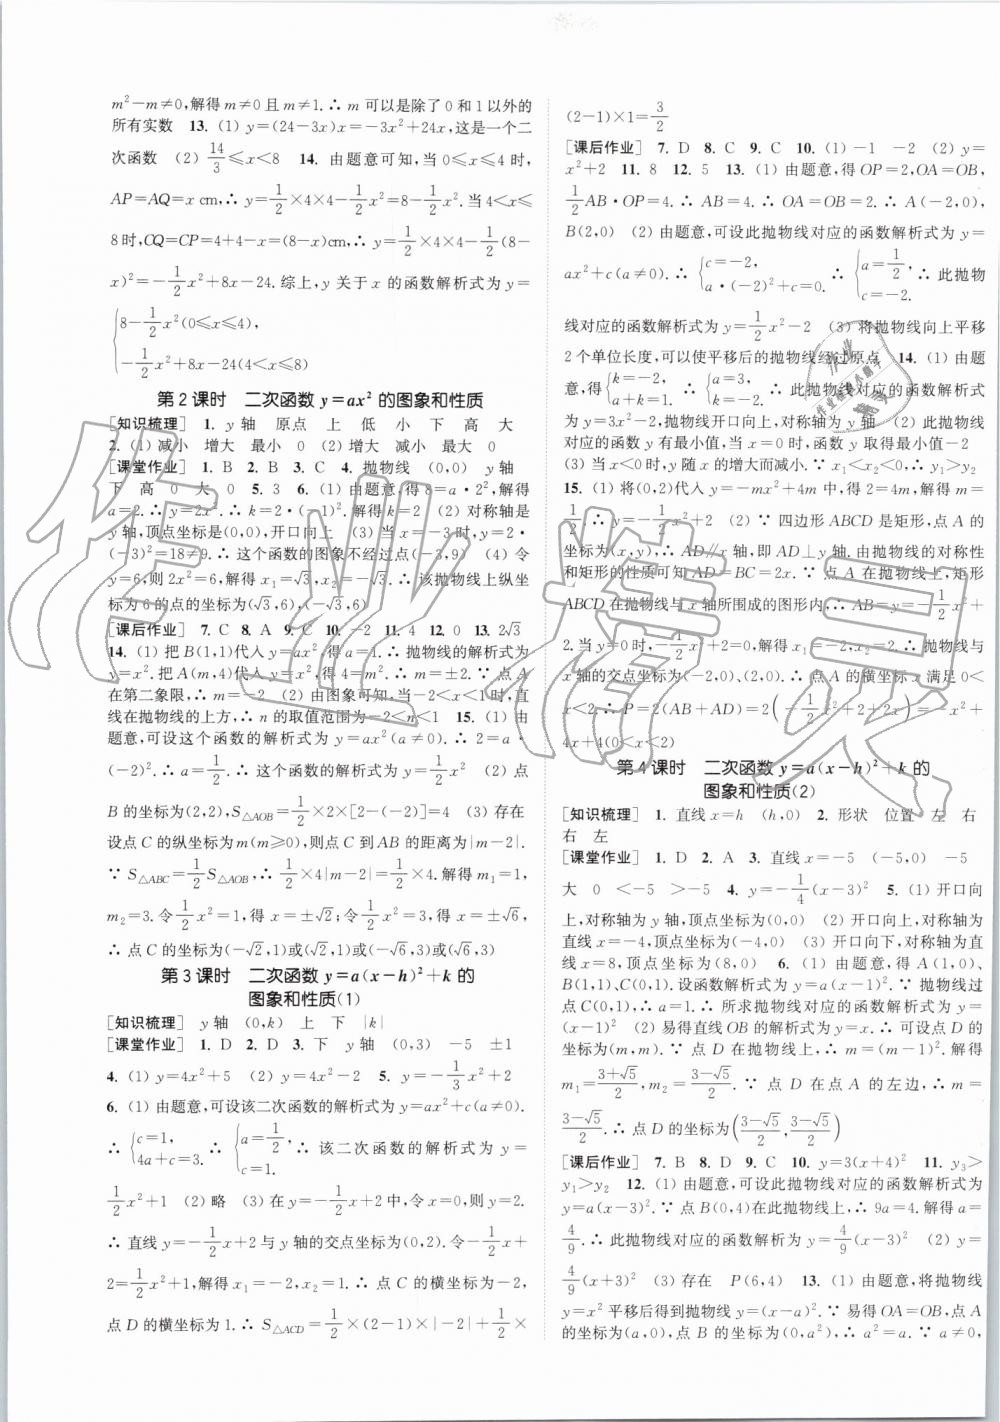 m²-m≠0,解得 m≠0 且 m≠1.∴ m 可以是除了 0 和 1 以外的
所有实数 13. (1) y=(24-3x)x=-3x²+24x,这是一个二
次函数 (2) 14/3≤x<8 14. 由题意可知,当 0≤x≤4 时,
AP=AQ=x cm,∴ y=1/2×4×4-1/2x²=8-1/2x².当 4<x≤
8 时,CQ=CP=4+4-x=(8-x)cm,∴ y=1/2×4×4-1/2(8-
x)²=-1/2x²+8x-24.综上,y 关于 x 的函数解析式为 y=
{8-1/2x²(0≤x≤4),
-1/2x²+8x-24(4<x≤8)
第 2 课时 二次函数 y=ax² 的图象和性质
[知识梳理] 1. y 轴 原点 上 低 小 下 高 大
2. (1) 减小 增大 最小 0 (2) 增大 减小 最大 0
[课堂作业] 1. B 2. B 3. C 4. 抛物线 (0,0) y 轴
下 高 0 大 0 5. 3 6. (1) 由题意,得 8=a·2²,解得
a=2.∴ y=2x².∴ k=2·(-1)².解得 k=2 (2) 对称轴是
y 轴,顶点坐标是(0,0),开口向上 (3) 当 x=-3 时,y=2·
(-3)²=18≠9.∴ 这个函数的图象不经过点(-3,9) (4) 令
y=6,则 2x²=6,解得 x₁=√3,x₂=-√3.∴ 该抛物线上纵坐
标为 6 的点的坐标为(√3,6),(-√3,6)
[课后作业] 7. C 8. A 9. C 10. -2 11. 4 12. 0 13. 2√3
14. (1) 把 B(1,1)代入 y=ax²,得 a=1.∴ 抛物线的解析式为
y=x².把 A(m,4)代入 y=x²,得 4=m².∴ m=±2.∵ 点 A
在第二象限,∴ m=-2 (2) 由图象可知,当-2<x<1 时,直
线在抛物线的上方,∴ n 的取值范围为-2<n<1 15. (1) 由
题意,可设这个函数的解析式为 y=ax²(a≠0).∴ 2=a·
(-2)².∴ a=1/2.∴ 这个函数的解析式为 y=1/2x² (2) 点
B 的坐标为(2,2),S△AOB=1/2×2×[2-(-2)]=4 (3) 存在
设点 C 的纵坐标为 m(m≥0),则点 C 到 AB 的距离为|m-2|.
∵ S△ABC=1/2S△AOB,∴ 1/2×4|m-2|=1/2×4.解得 m₁=1,
m₂=3.令1/2x²=1,得 x=±√2;令1/2x²=3,得 x=±√6,
∴ 点 C 的坐标为(-√2,1)或(√2,1)或(-√6,3)或(√6,3)
第 3 课时 二次函数 y=a(x-h)²+k 的
图象和性质(1)
[知识梳理] y 轴 (0,k) 上 下 |k|
[课堂作业] 1. D 2. D 3. 下 y 轴 (0,3) -5 ±1
4. (1) y=4x²+5 (2) y=4x²-2 5. y=-1/3x²+2
6. (1) 由题意,可设该二次函数的解析式为 y=ax²+c(a≠0).
∴ {c=1, 4a+c=3. ∴ {a=1/2, c=1. ∴ 该二次函数的解析式为 y=
1/2x²+1 (2) 略 (3) 在 y=-1/2x+2 中,令 x=0,则 y=2.
∴ 直线 y=-1/2x+2 与 y 轴的交点坐标为(0,2).令-1/2x+
2=1/2x²+1,解得 x₁=-2,x₂=1.∴ 点 C 的横坐标为-2,
点 D 的横坐标为 1.∴ S△ACD=1/2×(2-1)×|-2|+1/2×
(2-1)×1=3/2
[课后作业] 7. D 8. C 9. C 10. (1) -1 -2 (2) y=
x²+2 11. 8 12. 5 13. (1) 由题意,得 OP=2,OA=OB,
1/2AB·OP=4.∴ AB=4.∴ OA=OB=2.∴ A(-2,0),
B(2,0) (2) 由题意,可设此抛物线对应的函数解析式为 y=
ax²+c(a≠0).∴ {c=-2, a·(-2)²+c=0. ∴ {a=1/2, c=-2. ∴ 此抛物
线对应的函数解析式为 y=1/2x²-2 (3) 将抛物线向上平移
2 个单位长度,可以使平移后的抛物线经过原点 14. (1) 由题
意,得{k=-2, a+k=1. ∴ {a=3, k=-2. ∴ 此抛物线对应的函数解析式
为 y=3x²-2,抛物线开口向上,对称轴为 y 轴 (2) 此抛物线
对应的函数 y 有最小值,当 x=0 时,函数 y 取得最小值-2
(3) 当 x<0 时,y 随 x 的增大而减小.∵ x₁<x₂<0,∴ y₁>y₂
15. (1) 将(0,2)代入 y=-mx²+4m 中,得 2=4m,解得 m=
1/2.∴ y=-1/2x²+2 (2) ∵ 四边形 ABCD 是矩形,点 A 的
坐标为(x,y),∴ AD∥x 轴,即 AD⊥y 轴.由抛物线的对称性
和矩形的性质可知 AD=BC=2x.∵ 点 A 在抛物线上,矩形
ABCD 在抛物线与 x 轴所围成的图形内,∴ AB=y=-1/2x²+
2.当 y=0 时,-1/2x²+2=0,解得 x₁=-2,x₂=2.∴ 抛物线与
x 轴的交点坐标为(-2,0),(2,0).∴ 点 A 的横坐标 x 满足 0<
x<2.∴ P=2(AB+AD)=2(-1/2x²+2+2x)=-x²+
4x+4(0<x<2)
第 4 课时 二次函数 y=a(x-h)²+k 的
图象和性质(2)
[知识梳理] 1. 直线 x=h (h,0) 2. 形状 位置 左 右
右 左
[课堂作业] 1. D 2. A 3. 直线 x=-5 (-5,0) -5
大 0 <-5 >-5 4. y=-1/4(x-3)² 5. (1) 开口向
上,对称轴为 y 轴,顶点坐标为(0,0) (2) 开口向上,对称轴为
直线 x=-4,顶点坐标为(-4,0) (3) 开口向下,对称轴为
直线 x=8,顶点坐标为(8,0) 6. (1) 由题意,得 A(1,0),
B(1,1),C(0,1).设函数解析式为 y=a(x-1)².∵ 抛物线过
点 C(0,1),∴ a=1.∴ 所求抛物线对应的函数解析式为 y=
(x-1)² (2) 易得直线 OB 的解析式为 y=x.∴ 可设点 D 的
坐标为(m,m).∵ 点 D 在抛物线上,∴ m=(m-1)².解得
m₁=(3+√5)/2,m₂=(3-√5)/2.∵ 点 D 在点 A 的左边,∴ m=
(3-√5)/2.∴ 点 D 的坐标为((3-√5)/2,(3-√5)/2)
[课后作业] 7. B 8. D 9. C 10. y=3(x+4)² 11. y₃>
y₁>y₂ 12. (1) 由题意,可设此抛物线对应的函数解析式为
y=a(x-3)².∵ 点 B(0,4)在此抛物线上,∴ 9a=4.解得 a=
4/9.∴ 此抛物线对应的函数解析式为 y=4/9(x-3)² (2) y=
4/9(x+3)² (3) 存在 P(6,4) 13. (1) 由题意,将抛物线
y=x² 平移后得到抛物线 y=(x-a)².∵ 易得 OA=OB,点 A
的坐标为(a,0),点 B 的坐标为(0,a²),∴ a²=a.∵ a≠0,
作业精灵